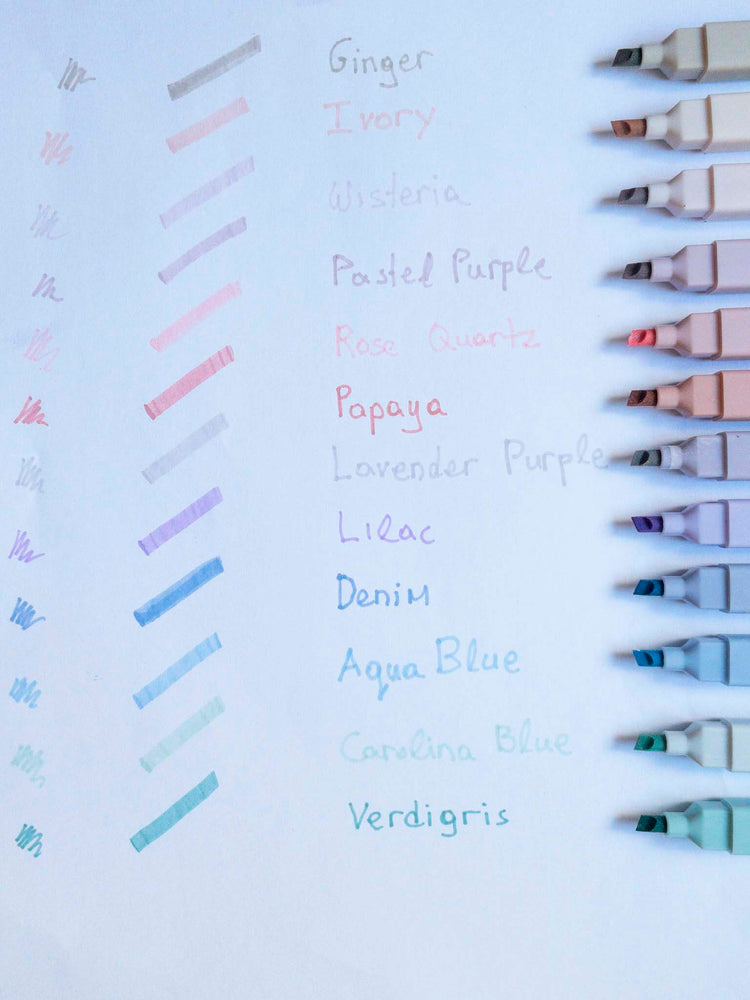 Ginger
Ivory
Wisteria
Pastel Purple
Rose Quartz
Papaya
Lavender Purple
Lilac
Denim
Aqua Blue
Carolina Blue
Verdigris